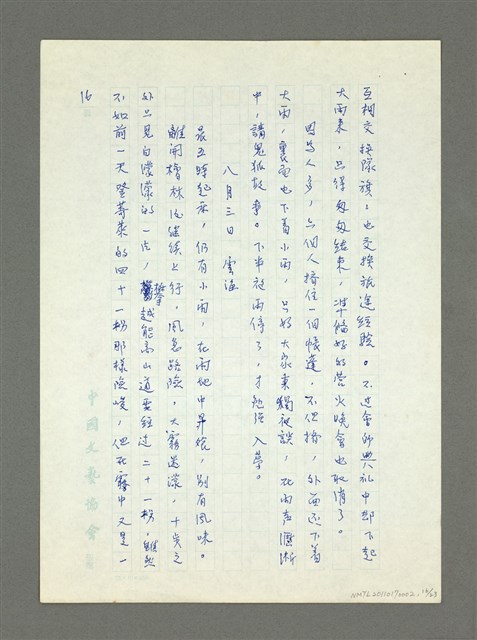 互相交換隊旗，也交換旅途經驗。不过會師典礼中却下起
大雨來，只得匆匆結束，準備好的營火晚會也取消了。
因為人多，六個人擠住一個帳蓬，不但擠，外面还下着
大雨，裏面也下着小雨，只好大家秉獨夜談，在雨聲淅淅
中，講鬼狐故事。下半夜雨停了，才勉强入夢。
八月三日 雲海
晨五時起床，仍有小雨，在雨地中昇旗，別有風味。
離開檜林後继续上行，風急路險，大霧迷濛，十步之
外只見白濛濛的一片，攀越能高山道要经过二十一拐，雖然
不如前一天登奇萊的四十一拐那樣險峻，但在霧中又是一
16
中國文藝協會
NMTL20110170002